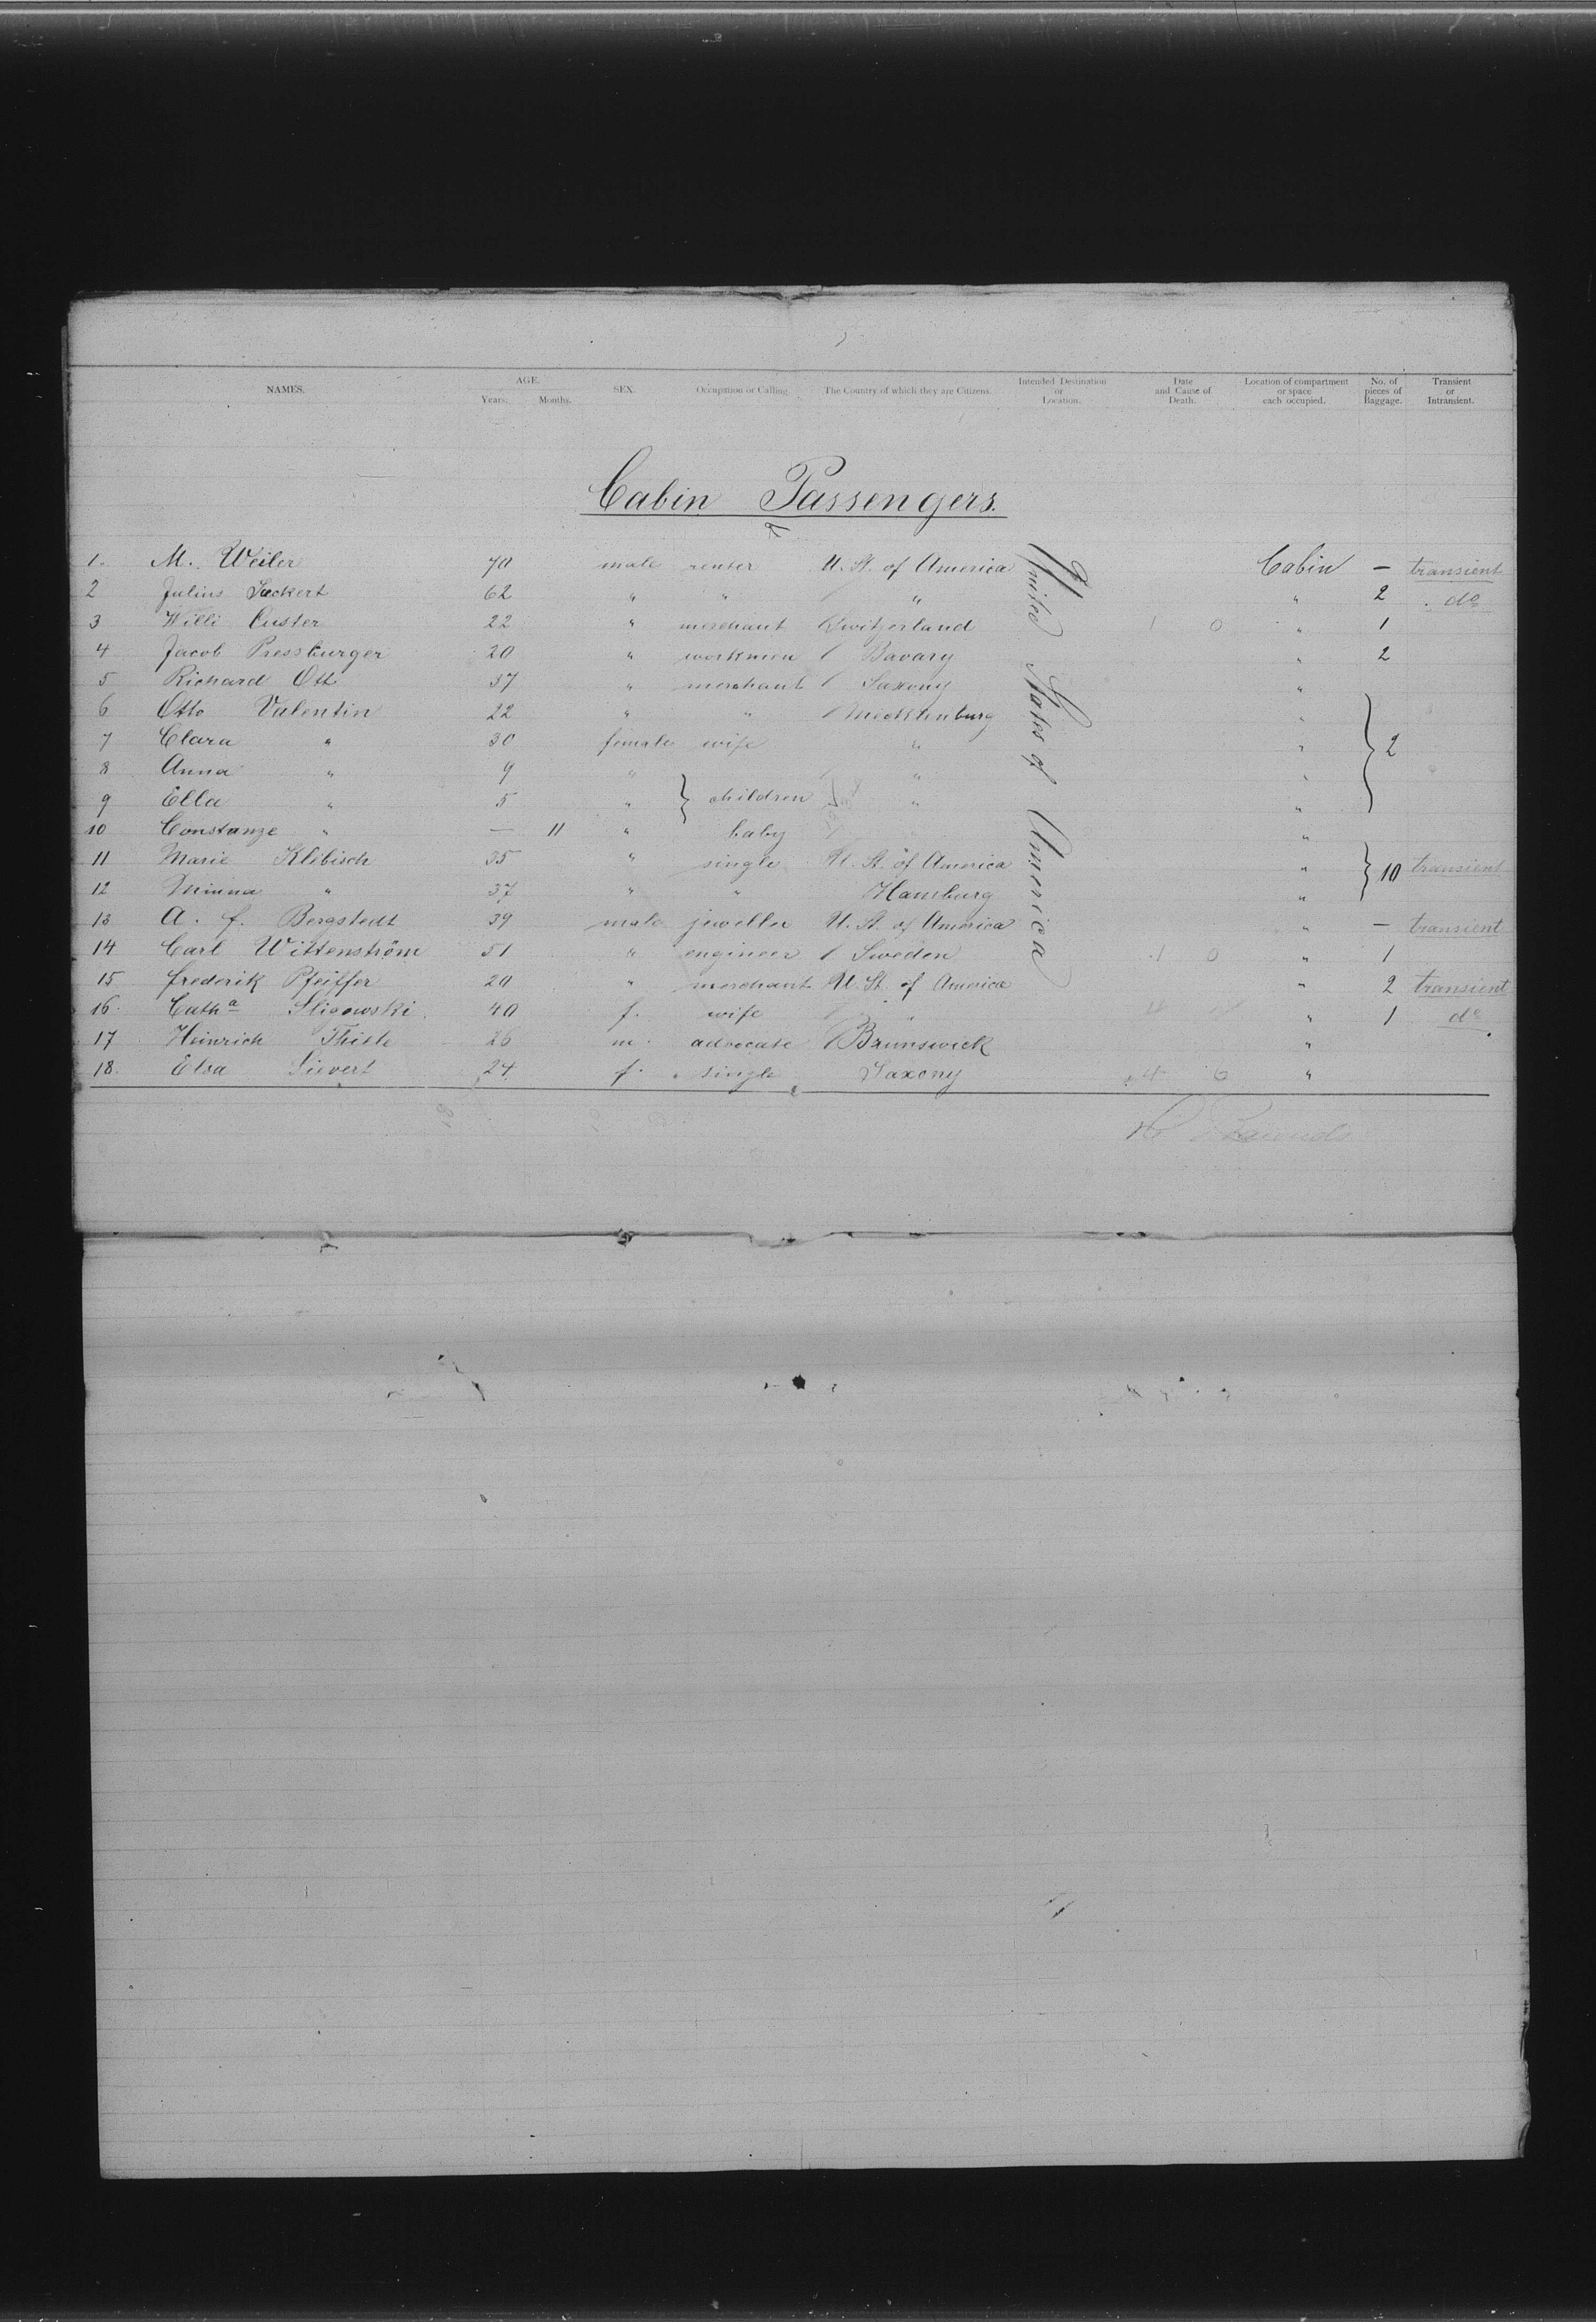 NAMES. AGE. Years. Months. SEX. Occupation or Calling. The Country of which they are Citizens. Intended Destination or Location. Date and Cause of Death. Location of compartment or space each occupied. No. of pieces of Baggage. Transient or Intransient.
Cabin Passengers.
1. M. Weiler 70 male renter U. St. of America Cabin — transient
2 Julius Sackert 62 " " " " 2 do
3 Willi Custer 22 " merchant Switzerland 1 0 " 1
4 Jacob Pressburger 20 " workmen Bavary " 2
5 Richard Ott 37 " merchant Saxony "
6 Otto Valentin 22 " " Mecklenburg "
7 Clara " 30 female wife " " } 2
8 Anna " 9 " " "
9 Ella " 5 " } children " "
10 Constanze " — 11 " baby "
11 Marie Klebisch 35 " single U. St. of America " } 10 transient
12 Minna " 37 " " Hamburg "
13 A. f. Bergstedt 39 male jeweller U. St. of America " — transient
14 Carl Wittenström 51 " engineer Sweden 1 0 " 1
15 frederik Pfeiffer 20 " merchant U. St. of America " 2 transient
16. Catha Sligowski 40 f. wife " " 1 do
17 Heinrich Thiele 26 m. advocate Brunswick "
18. Elsa Sievert 24 f. single Saxony 4 6 "
United States of America